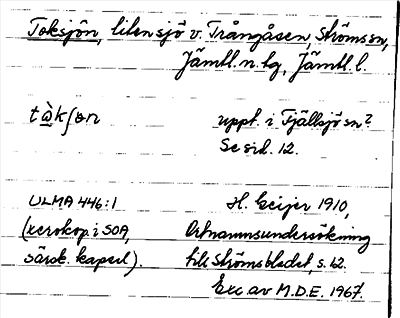 Toksjön, liten sjö v. Trångåsen, Ströms sn,
Jämtl. n. tg, Jämtl. l.
tàkʃɵn uppt. i Fjällsjö sn?
Se sid. 12.
ULMA 446:1 H. Geijer 1910,
(xerokop. i SOA, Ortnamnsundersökning
särsk. kapsel). till Strömsbladet, s. 62.
Exc. av M.D.E. 1967.